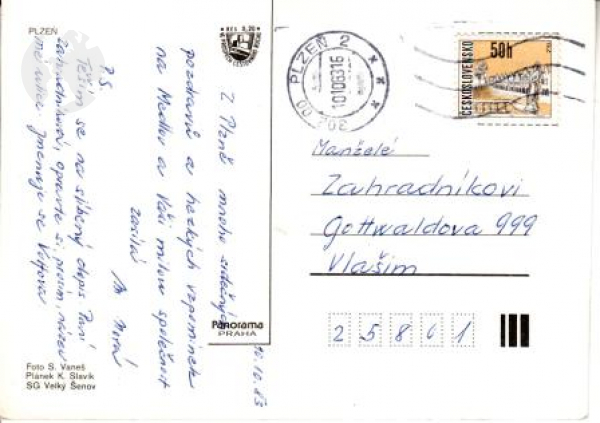 PLZEŇ
Z Plzně mnoho srdečných
pozdravů a hezkých vzpomínek
na Medku a Vaši milou společnost
zasílá
M Nová
P.S.
Těším se na slíbený dopis Paní
Zahradníkové, opravte si, prosím, název
mé ulice. Jmenuje se
10.10.83
Foto S. Vaneš
Plánek K. Slavík
SG Velký Šenov
Panorama
PRAHA
PLZEŇ 2
10108316
ČESKOSLOVENSKO
50h
Manželé
Zahradníkovi
Gottwaldova 999
Vlašim
25801